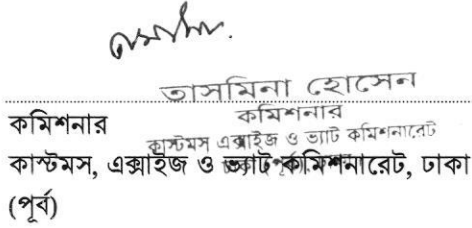 তাসমিনা হোসেন
কমিশনার
কাস্টমস এক্সাইজ ও ভ্যাট কমিশনারেট
কমিশনার
কাস্টমস, এক্সাইজ ও ভ্যাট কমিশনারেট, ঢাকা
(পূর্ব)